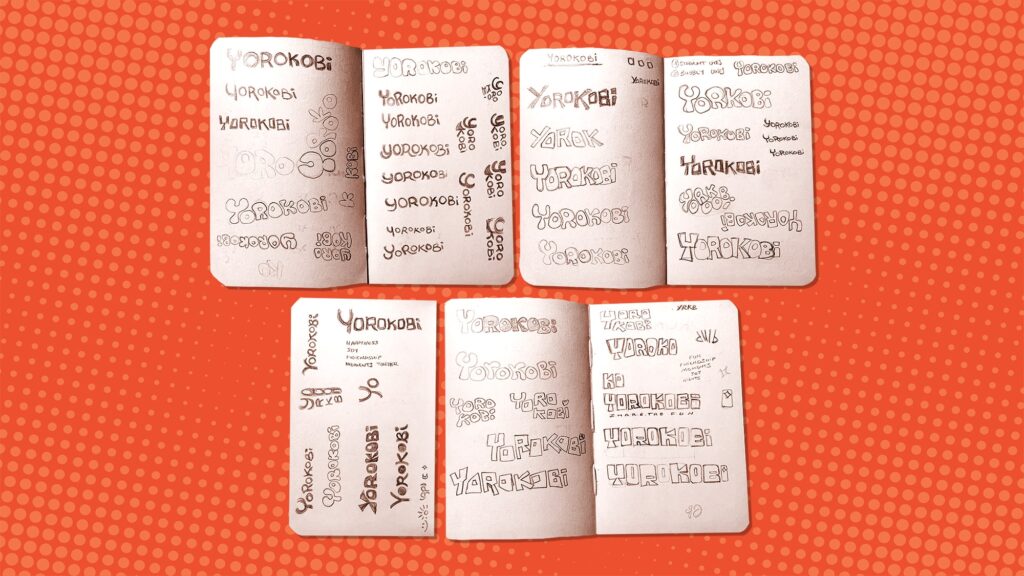 YOROKOBI
YOROKOBI
YOROKOBI
YORO
YOROKO
KOBI
YOROKOBI
YOROKOBI
YORO
KOBI
YOROKOBI
YOROKOBI
YOROKOBI
YOROKOBI
YOROKOBI
YOROKOBI
YOROKOBI
YOROKOBI
YORO
KOBI
YORO
KOBI
YORO
KOBI
YOROKOBI
YORO
KOBI
YOROKOBI
YOROKOBI
YOROKOBI
YOROK
YOROKOBI
YOROKOBI
YOROKOBI
YOROKOBI
YORKOBI
YOROKOBI
YOROKOBI
YOROKOBI
YOROKOBI
YOROKOBI
YOROKOBI
YOROKOBI
YOROKOBI
YOROKOBI
HAPPINESS
JOY
FRIENDSHIP
MOMENTS TOGETHER
YO
YOROKOBI
YOROKOBI
YOROKOBI
YOROKOBI
YOROKOBI
YOROKOBI
YORO
KOBI
YORO
KOBI
YOROKOBI
YOROKOBI
YORO
KOBI
YRKB
YOROKO
FUN
FRIENDSHIP
MOMENTS
JOY
KO
YOROKOBI
SHARE THE FUN
YOROKOBI
YOROKOBI